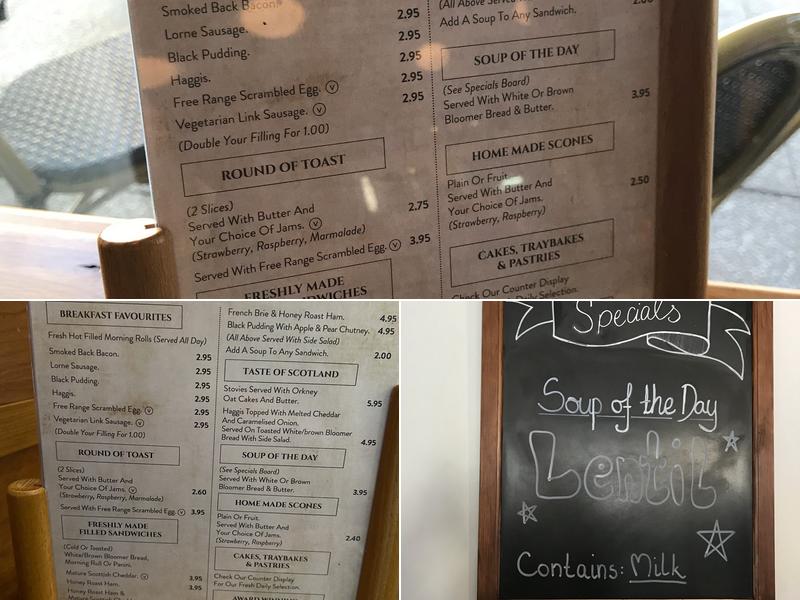 Smoked Back Bacon.
Lorne Sausage. 2.95
Black Pudding. 2.95
Haggis. 2.95
Free Range Scrambled Egg. V 2.95
Vegetarian Link Sausage. V 2.95
(Double Your Filling For 1.00)
ROUND OF TOAST
(2 Slices)
Served With Butter And 2.75
Your Choice Of Jams. V
(Strawberry, Raspberry, Marmalade)
Served With Free Range Scrambled Egg. V 3.95
FRESHLY MADE
(All Above Served
Add A Soup To Any Sandwich.
SOUP OF THE DAY
(See Specials Board)
Served With White Or Brown 3.95
Bloomer Bread & Butter.
HOME MADE SCONES
Plain Or Fruit.
Served With Butter And 2.50
Your Choice Of Jams.
(Strawberry, Raspberry)
CAKES, TRAYBAKES
& PASTRIES
Check Our Counter Display
Daily Selection.
BREAKFAST FAVOURITES
Fresh Hot Filled Morning Rolls (Served All Day)
Smoked Back Bacon. 2.95
Lorne Sausage. 2.95
Black Pudding. 2.95
Haggis. 2.95
Free Range Scrambled Egg. V 2.95
Vegetarian Link Sausage. V 2.95
(Double Your Filling For 1.00)
ROUND OF TOAST
(2 Slices)
Served With Butter And
Your Choice Of Jams. V 2.60
(Strawberry, Raspberry, Marmalade)
Served With Free Range Scrambled Egg. V 3.95
FRESHLY MADE
FILLED SANDWICHES
(Cold Or Toasted)
White/Brown Bloomer Bread,
Morning Roll Or Panini.
Mature Scottish Cheddar. V 3.95
Honey Roast Ham. 3.95
Honey Roast Ham &
French Brie & Honey Roast Ham. 4.95
Black Pudding With Apple & Pear Chutney. 4.95
(All Above Served With Side Salad)
Add A Soup To Any Sandwich. 2.00
TASTE OF SCOTLAND
Stovies Served With Orkney
Oat Cakes And Butter. 5.95
Haggis Topped With Melted Cheddar
And Caramelised Onion.
Served On Toasted White/brown Bloomer
Bread With Side Salad. 4.95
SOUP OF THE DAY
(See Specials Board)
Served With White Or Brown
Bloomer Bread & Butter. 3.95
HOME MADE SCONES
Plain Or Fruit.
Served With Butter And
Your Choice Of Jams. 2.40
(Strawberry, Raspberry)
CAKES, TRAYBAKES
& PASTRIES
Check Our Counter Display
For Our Fresh Daily Selection.
Specials
Soup of the Day
Lentil
Contains: Milk